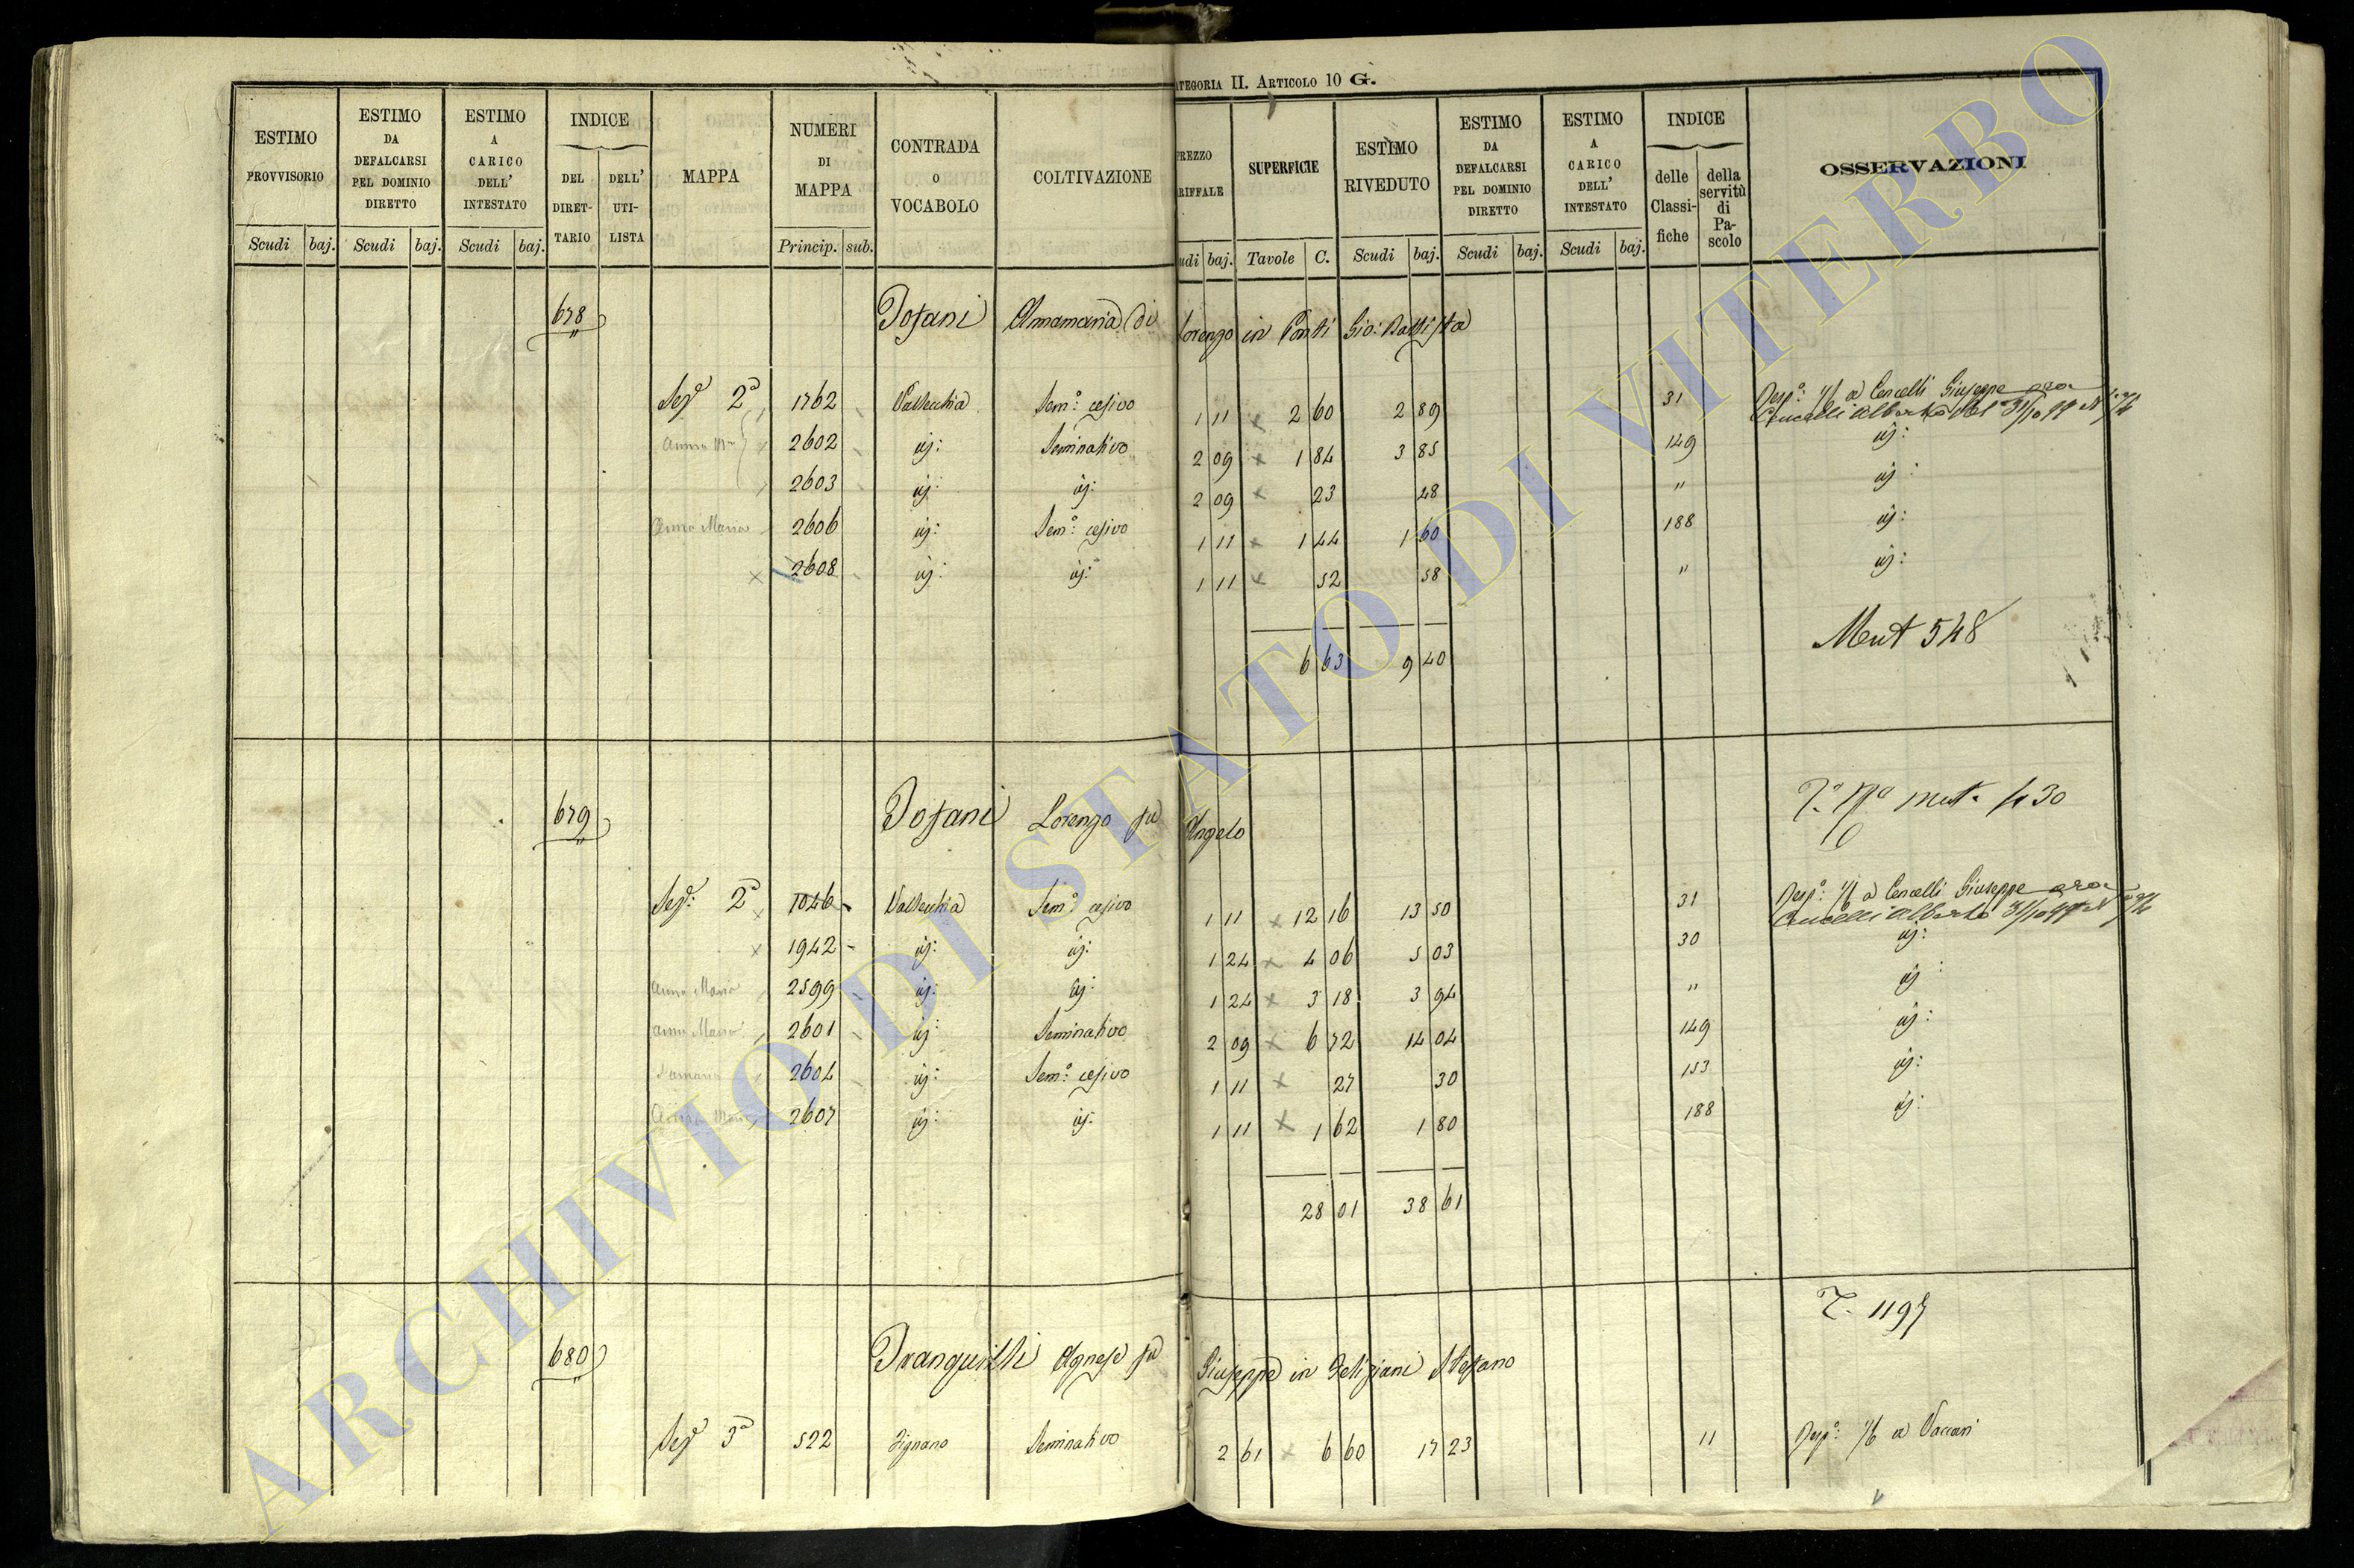 CATEGORIA II. ARTICOLO 10 G.
ESTIMO PROVVISORIO | ESTIMO DA DEFALCARSI PEL DOMINIO DIRETTO | ESTIMO A CARICO DELL' INTESTATO | INDICE DEL DIRETTARIO | DELL' UTILISTA | MAPPA | NUMERI DI MAPPA | CONTRADA O VOCABOLO | COLTIVAZIONE | PREZZO RIFFALE | SUPERFICIE | ESTIMO RIVEDUTO | ESTIMO DA DEFALCARSI PEL DOMINIO DIRETTO | ESTIMO A CARICO DELL' INTESTATO | INDICE delle Classifiche | della servitù di Pascolo | OSSERVAZIONI
Scudi | baj. | Scudi | baj. | Scudi | baj. | Princip. | sub. | udi | baj. | Tavole | C. | Scudi | baj. | Scudi | baj. | Scudi | baj.
678 Tofani Annamaria di Lorenzo in Ponti Gio: Battista
Sez.e 2a 1762 Vallecchia Sem.o cesivo 1 11 × 2 60 2 89 31 Resp.a 1/6 a Cencelli Giuseppe ora
Cencelli Alberto
Anna Ma 2602 id: Seminativo 2 09 × 1 84 3 85 149 id:
2603 id: id: 2 09 × 23 48 " id:
Anna Maria 2606 id: Sem.o cesivo 1 11 × 1 44 1 60 188 id:
× 2608 id: id: 1 11 × 52 58 " id:
6 63 9 40
Ment 548
679 Tofani Lorenzo fu Angelo
mut. 430
Sez.e 2a × 1046 Vallecchia Sem.o cesivo 1 11 × 12 16 13 50 31 Resp.a 1/6 a Cencelli Giuseppe ora
Cencelli Alberto
× 1942 id: id: 1 24 × 4 06 5 03 30 id:
Anna Maria 2599 id: id: 1 24 × 3 18 3 94 " id:
Anna Maria 2601 id: Seminativo 2 09 × 6 72 14 04 149 id:
2604 id: Sem.o cesivo 1 11 × 27 30 153 id:
Anna Maria 2607 id: id: 1 11 × 1 62 1 80 188 id:
28 01 38 61
T. 1197
680 Tranquilli Agnese fu Giuseppe in Feliziani Stefano
Sez.e 3a 522 Fignano Seminativo 2 61 × 6 60 17 23 11 Resp.a 1/6 a Vaccari
ARCHIVIO DI STATO DI VITERBO